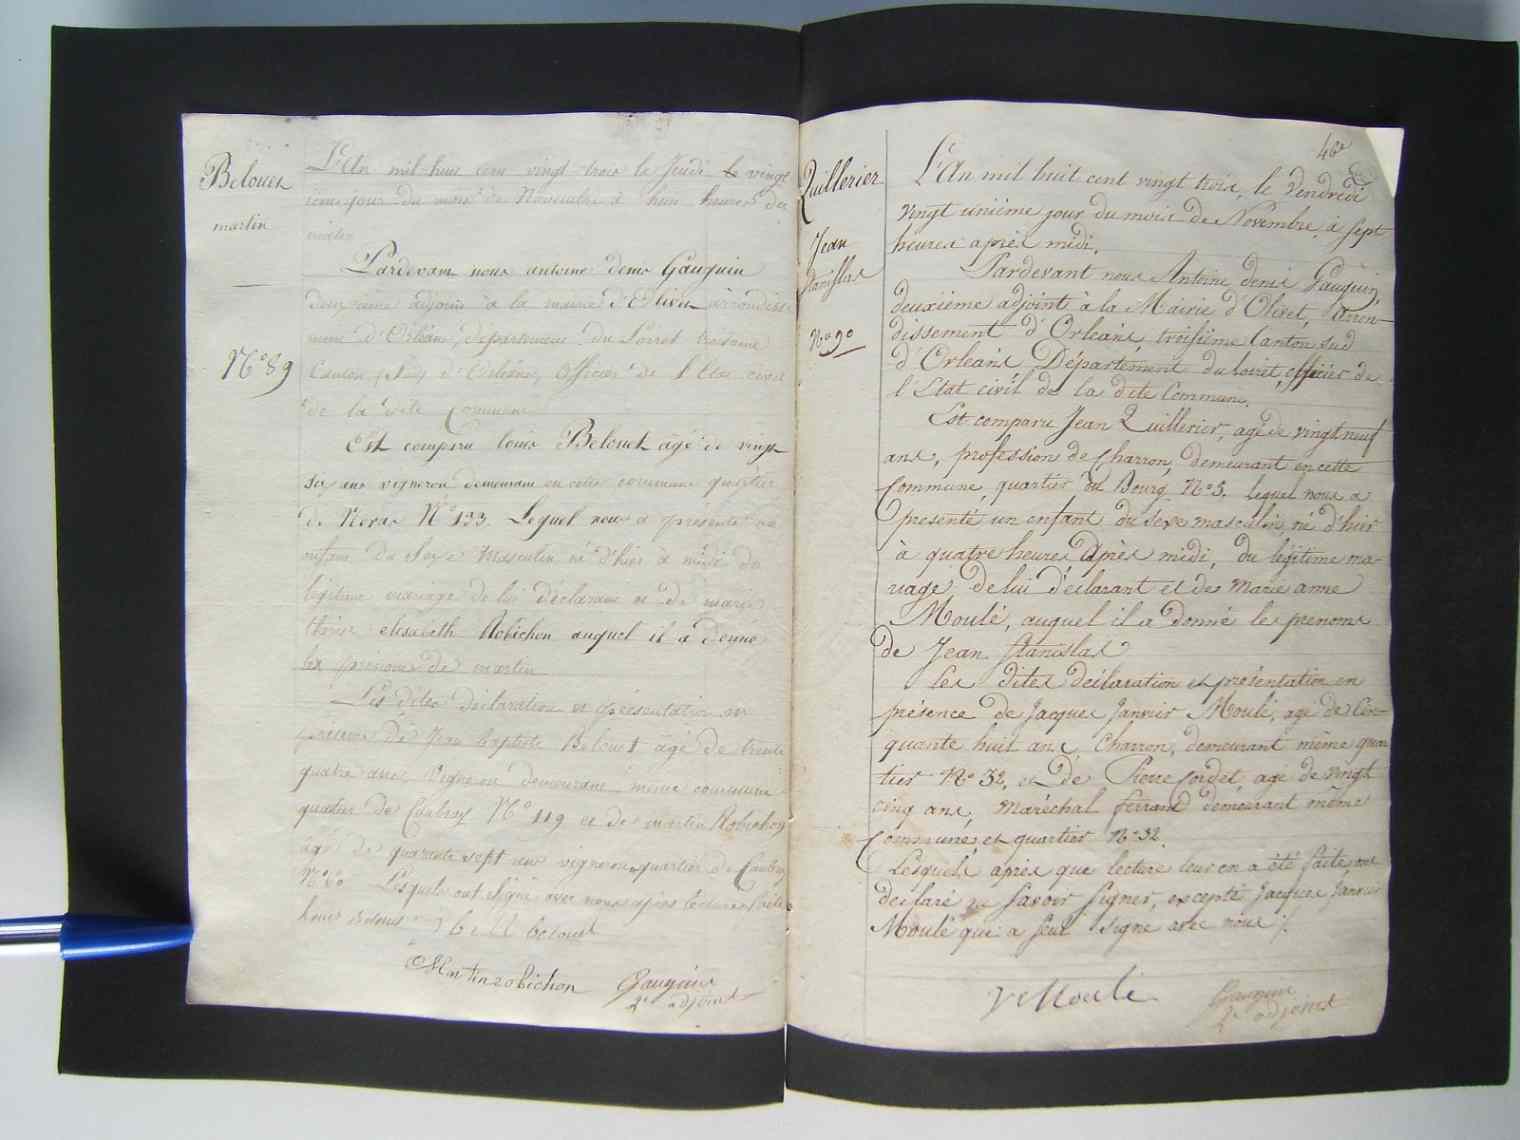 Belouet
martin
N.° 89
L'An mil huit cent vingt trois le Jeudi le vingt
ieme jour du mois de Novembre à huit heures du
matin
Pardevant nous antoine denis Gauguin
deuxieme adjoint à la mairie d'Olivet arrondisse
ment d'Orléans, département du Loiret troisieme
Canton (Sud) d'Orléans, Officier de l'Etat civil
de la dite Commune
Est comparu louis Belouet âgé de vingt
six ans vigneron demeurant en cette commune quartier
de Noras N.° 133. Lequel nous a présenté un
enfant du Sexe Masculin né d'hier à midi du
légitime mariage de lui déclarant et de marie
thérese elisabeth Robichon auquel il a donné
les prénoms de martin
Les dites déclaration et présentation en
présence de Jean baptiste Belouet âgé de trente
quatre ans, Vigneron demeurant même commune
quartier de Caubray N.° 119 et de martin Robichon
âgé de quarante sept ans vigneron quartier de Caubray
N.° 60 Lesquels ont signé avec nous après lecture faite
louis Belouet J b belouet
Martin robichon Gauguin
2e adjoint
46e
Quillerier
Jean
Stanislas
N.° 90
L'An mil huit cent vingt trois, le Vendredi
vingt unième jour du mois de Novembre, à sept
heures après midi.
Pardevant nous Antoine denis Gauguin,
deuxième adjoint à la Mairie d'Olivet, arron-
dissement d'Orléans, troisième Canton sud
d'Orléans Département du loiret, officier de
l'Etat civil de la dite Commune.
Est comparu Jean Quillerier, agé de vingt neuf
ans, profession de Charron, demeurant en cette
Commune, quartier du Bourg N.° 5. lequel nous a
présenté un enfant du sexe masculin, né d'hier
à quatre heures après midi, du légitime ma-
riage de lui déclarant et de Marie anne
Moulé, auquel il a donné les prénoms
de Jean Stanislas
les dites déclaration et présentation en
présence de Jacques Janvier Moulé, agé de Cin-
quante huit ans, Charron, demeurant même quar
tier N.° 32, et de Pierre Cordel agé de vingt
cinq ans, maréchal ferrand demeurant même
Commune et quartier N.° 32.
Lesquels après que lecture leur en a été faite ont
déclaré ne savoir signer, excepté Jacques Janvier
Moulé qui a seul signé avec nous /.
Moulé
Gauguin
2e adjoint